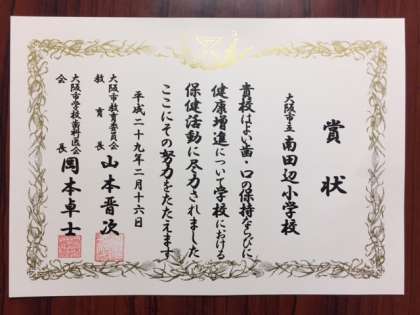 賞状
大阪市立 南田辺小学校
貴校はよい歯・口の保持ならびに
健康増進について学校における
保健活動に尽力されました
ここにその努力をたたえます
平成二十九年二月十六日
大阪市教育委員会
教育長 山本晋次
大阪市学校歯科医会
会長 岡本卓士